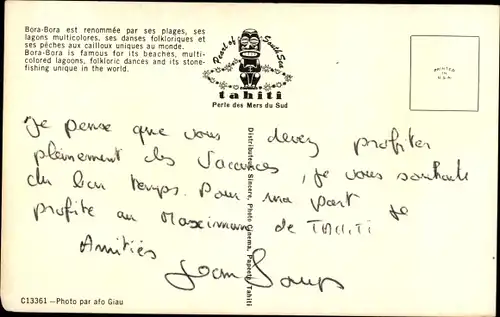 Bora-Bora est renommée par ses plages, ses
lagons multicolores, ses danses folkloriques et
ses pêches aux cailloux uniques au monde.
Bora-Bora is famous for its beaches, multi-
colored lagoons, folkloric dances and its stone-
fishing unique in the world.
Pearl of South Sea
tahiti
Perle des Mers du Sud
PRINTED
IN
U.S.A.
Je pense que vous devez profiter
pleinement des vacances, je vous souhaite
du bon temps. Pour ma part je
profite au Maximum de TAHITI
Amitiés
Distributeurs Sincere, Photo Cinema, Papeete Tahiti
C13361 — Photo par afo Giau